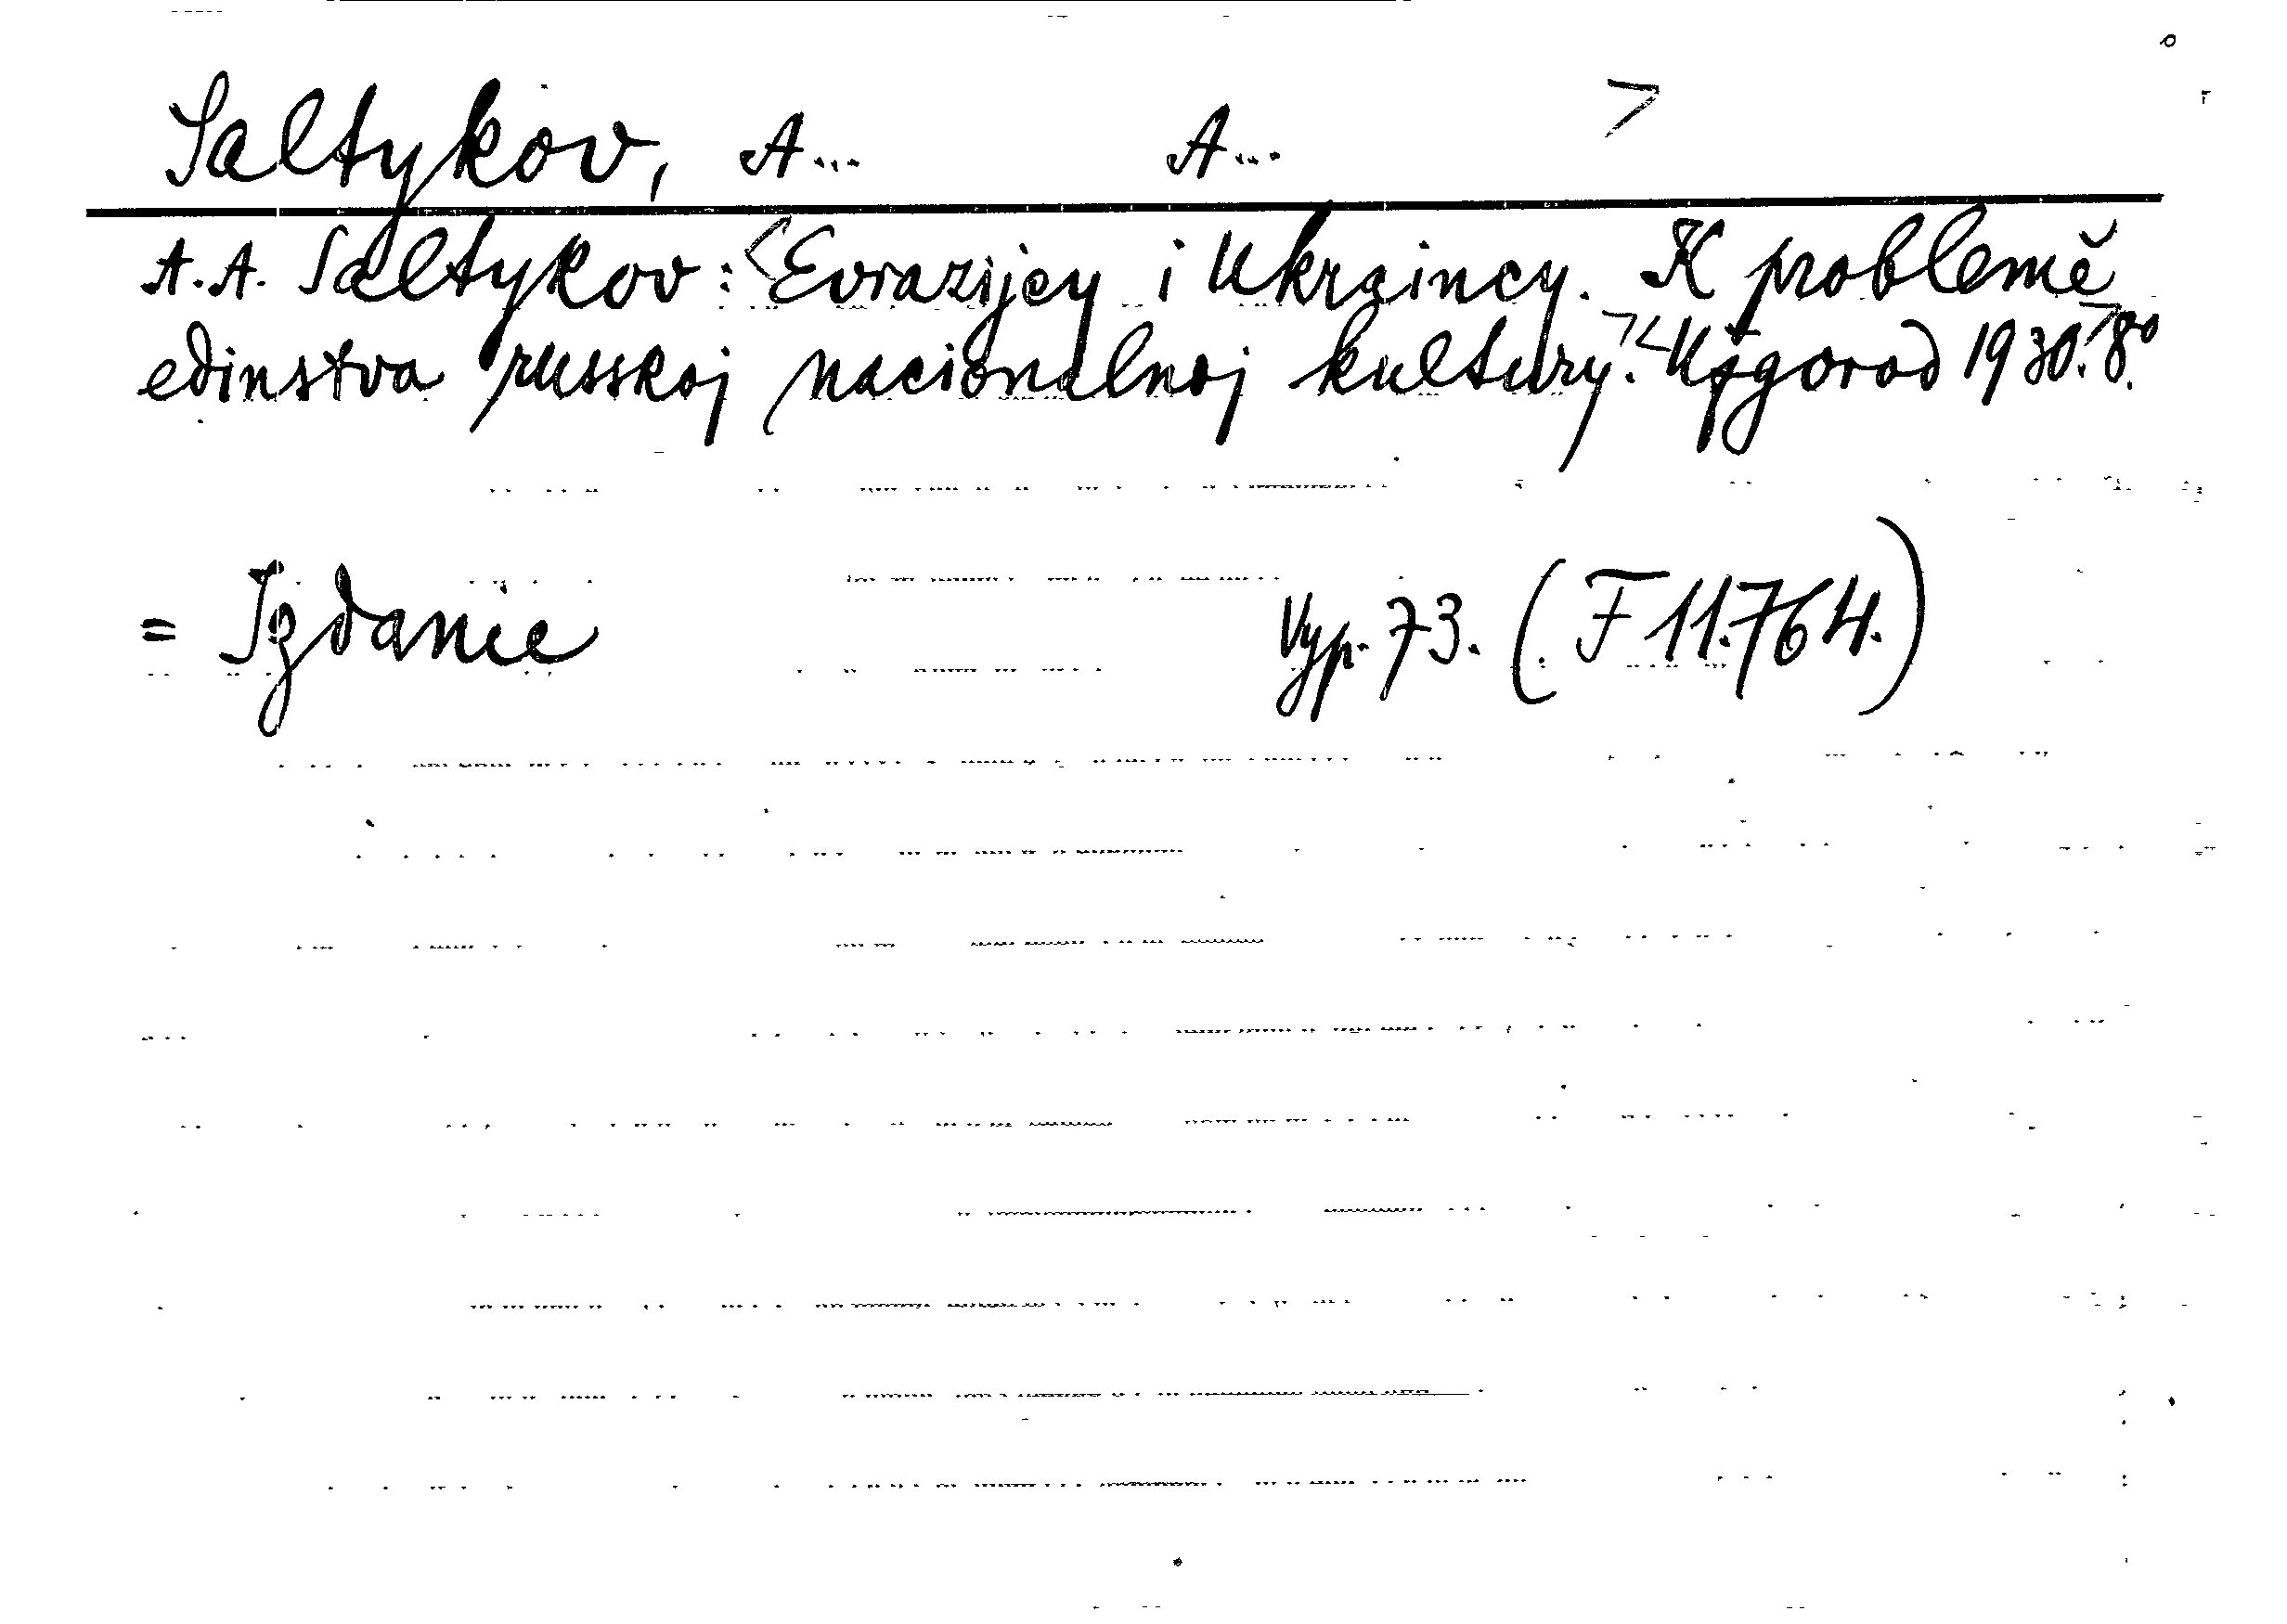 Saltykov, A... A... >
A. A. Saltykov: <Evrazijcy i Ukraincy. K problemě
edinstva russkoj nacionalnoj kultury.> <Užgorod 1930.> 8°.
= Izdanie Vyp. 73. (F 11.764.)